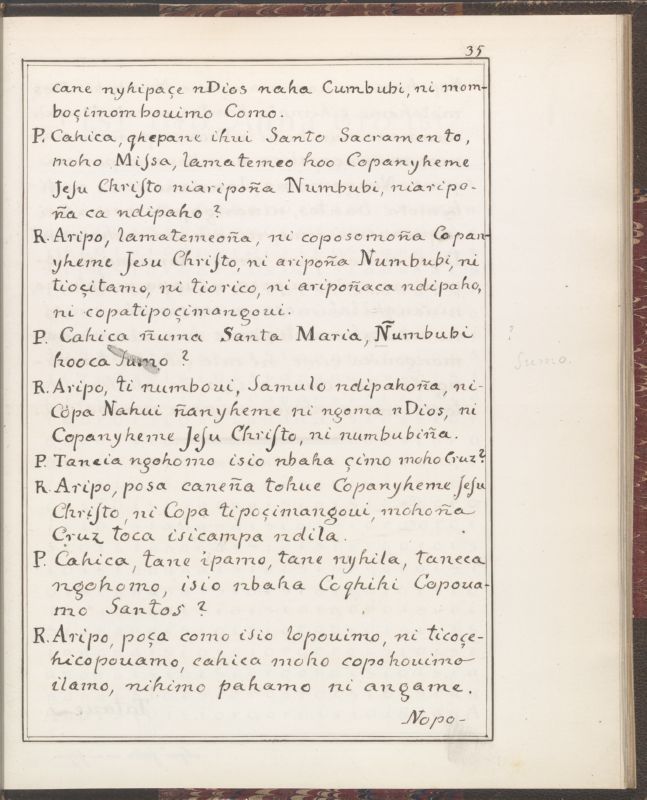 35
cane nyhipaçe nDios naha Cumbubi, ni mom-
boçimombouimo Como.
P. Cahica, qhepane ihui Santo Sacramento,
moho Miſsa, lamatemeo hoo Copanyheme
Jeſu Chriſto niaripoña Numbubi, niaripo-
ña ca ndipaho ?
R. Aripo, lamatemeoña, ni coposomoña Copan-
yheme Jesu Chriſto, ni aripoña Numbubi, ni
tioçitamo, ni tiorico, ni aripoñaca ndipaho,
ni copatipoçimangoui.
P. Cahica ñuma Santa Maria, Ñumbubi
hooca Sumo ?
R. Aripo, ti numboui, Samulo ndipahoña, ni-
Copa Nahui ñanyheme ni ngoma nDios, ni
Copanyheme Jeſu Chriſto, ni numbubiña.
P. Taneia ngohomo isio nbaha çimo moho Cruz?
R. Aripo, posa caneña tohue Copanyheme Jeſu
Chriſto, ni Copa tipoçimangoui, mohoña
Cruz toca isicampa ndila.
P. Cahica, tane ipamo, tane nyhila, taneca
ngohomo, isio nbaha Coqhihi Copoua-
mo Santos ?
R. Aripo, poça como isio lopouimo, ni ticoçe-
hicopouamo, cahica moho copohouimo
ilamo, nihimo pahamo ni angame.
Nopo-
?
Sumo.